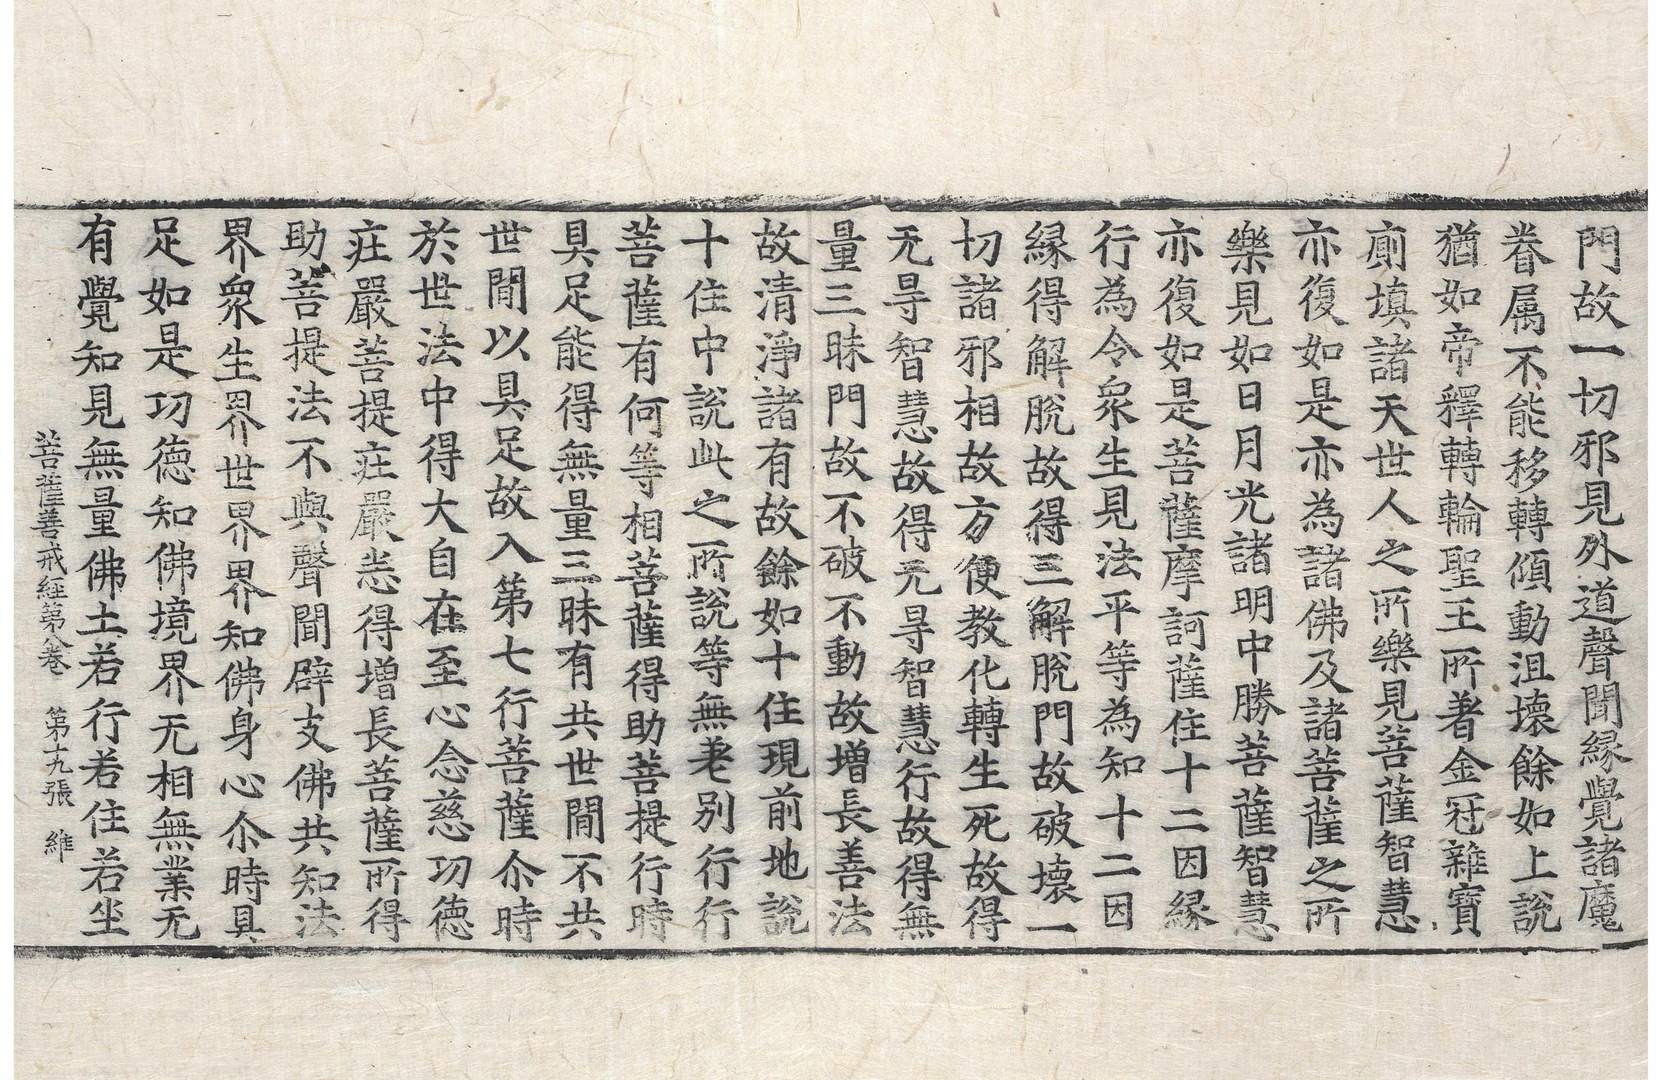 門故一切邪見外道聲聞緣覺諸魔
眷属不能移轉傾動沮壞餘如上說
猶如帝釋轉輪聖王所著金冠雜寶
廁填諸天世人之所樂見菩薩智慧
亦復如是亦為諸佛及諸菩薩之所
樂見如日月光諸明中勝菩薩智慧
亦復如是菩薩摩訶薩住十二因緣
行為令衆生見法平等為知十二因
緣得解脫故得三解脫門故破壞一
切諸邪相故方便教化轉生死故得
无㝵智慧故得无㝵智慧行故得無
量三昧門故不破不動故增長善法
故清淨諸有故餘如十住現前地說
十住中說此之所說等無差别行行
菩薩有何等相菩薩得助菩提行時
具足能得無量三昧有共世間不共
世間以具足故入第七行菩薩尒時
於世法中得大自在至心念慈功德
庄嚴菩提庄嚴恙得增長菩薩所得
助菩提法不與聲聞辟支佛共知法
界衆生界世界界知佛身心尒時具
足如是功德知佛境界无相無業无
有覺知見無量佛土若行若住若坐
菩薩善戒經第八卷 第十九張 維